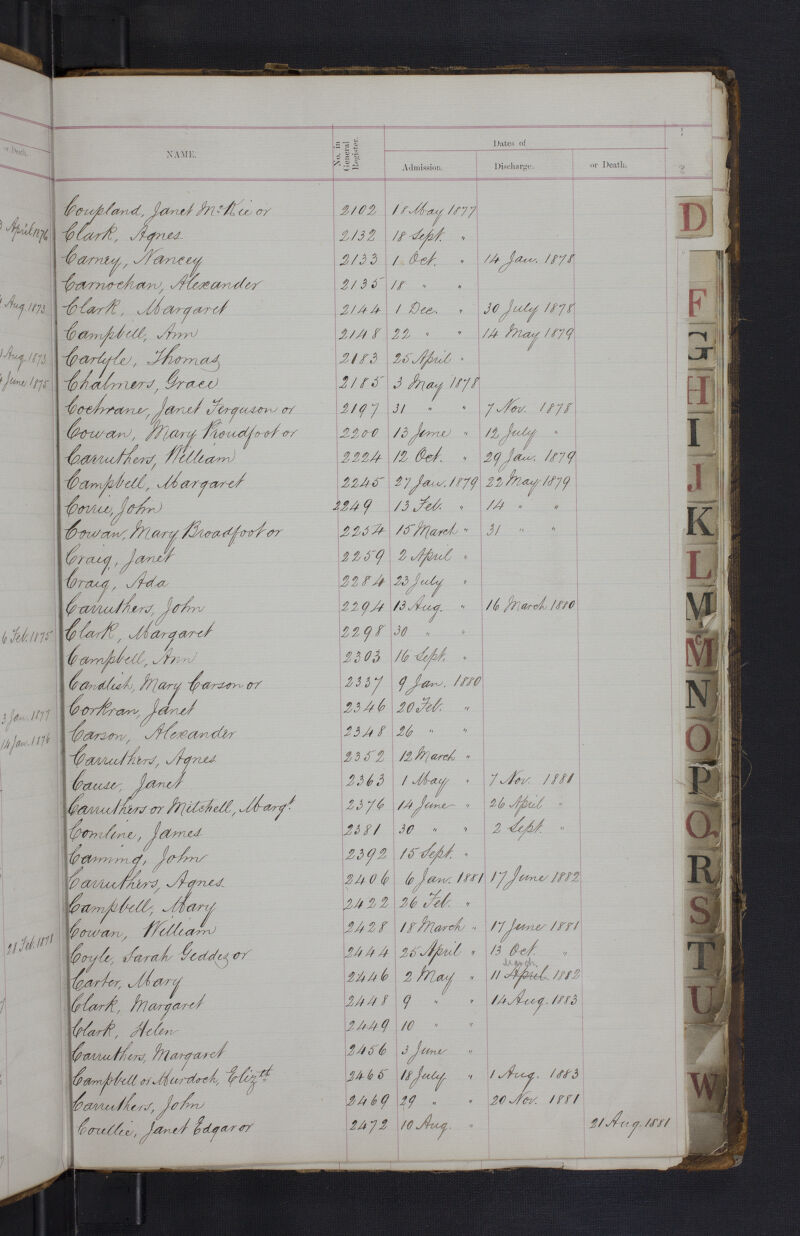 or Death.
3 April 1876
Aug. 1873
Aug. 1873
June 1875
6 Feb. 1875
3 Jan. 1877
14 Jan. 1876
28 Feb. 1878
NAME. No. in General Register. Dates of
Admission. Discharge. or Death.
Coupland, Janet McKie or 2102 18 May 1877
Clark, Agnes 2132 18 Sept. "
Carney, Nancey 2133 1 Oct. " 14 Jan. 1878
Carnochan, Alexander 2135 18 " "
Clark, Margaret 2144 1 Dec. " 30 July 1878
Campbell, Ann 2148 22 " " 14 May 1879
Carlyle, Thomas 2183 25 April "
Chalmers, Grace 2185 3 May 1878
Cochrane, Janet Ferguson or 2197 31 " " 7 Nov. 1878
Cowan, Mary Proudfoot or 2200 13 June " 12 July "
Carruthers, William 2224 12 Oct. " 29 Jan. 1879
Campbell, Margaret 2245 27 Jan. 1879 22 May 1879
Corrie, John 2249 13 Feb. " 14 " "
Cowan, Mary Broadfoot or 2254 15 March " 31 " "
Craig, Janet 2259 2 April "
Craig, Ada 2284 23 July "
Carruthers, John 2294 13 Aug. " 16 March 1880
Clark, Margaret 2298 30 " "
Campbell, Ann 2303 16 Sept. "
Candlish, Mary Carson or 2337 9 Jan. 1880
Corkran, Janet 2346 20 Feb. "
Carson, Alexander 2348 26 " "
Carruthers, Agnes 2352 12 March "
Cause, Janet 2363 1 May " 7 Nov. 1881
Carruthers or Mitchell, Margt. 2376 14 June " 26 April "
Comline, James 2381 30 " " 2 Sept. "
Canning, John 2392 15 Sept. "
Carruthers, Agnes 2406 6 Jan. 1881 17 June 1882
Campbell, Mary 2422 26 Feb. "
Cowan, William 2428 18 March " 17 June 1881
Coyle, Sarah Geddes or 2444 25 April " 13 Oct. "
Carter, Mary 2446 2 May " 11 April March 1882
Clark, Margaret 2448 9 " " 14 Aug. 1883
Clark, Helen 2449 10 " "
Carruthers, Margaret 2456 3 June "
Campbell or Murdoch, Elizth. 2465 18 July " 1 Aug. 1883
Carruthers, John 2469 29 " " 20 Nov. 1881
Coullie, Janet Edgar or 2472 10 Aug. " 21 Aug. 1881
D
F
G
H
I
J
K
L
M
McM
N
O
P
Q.
R
S
T
U
W